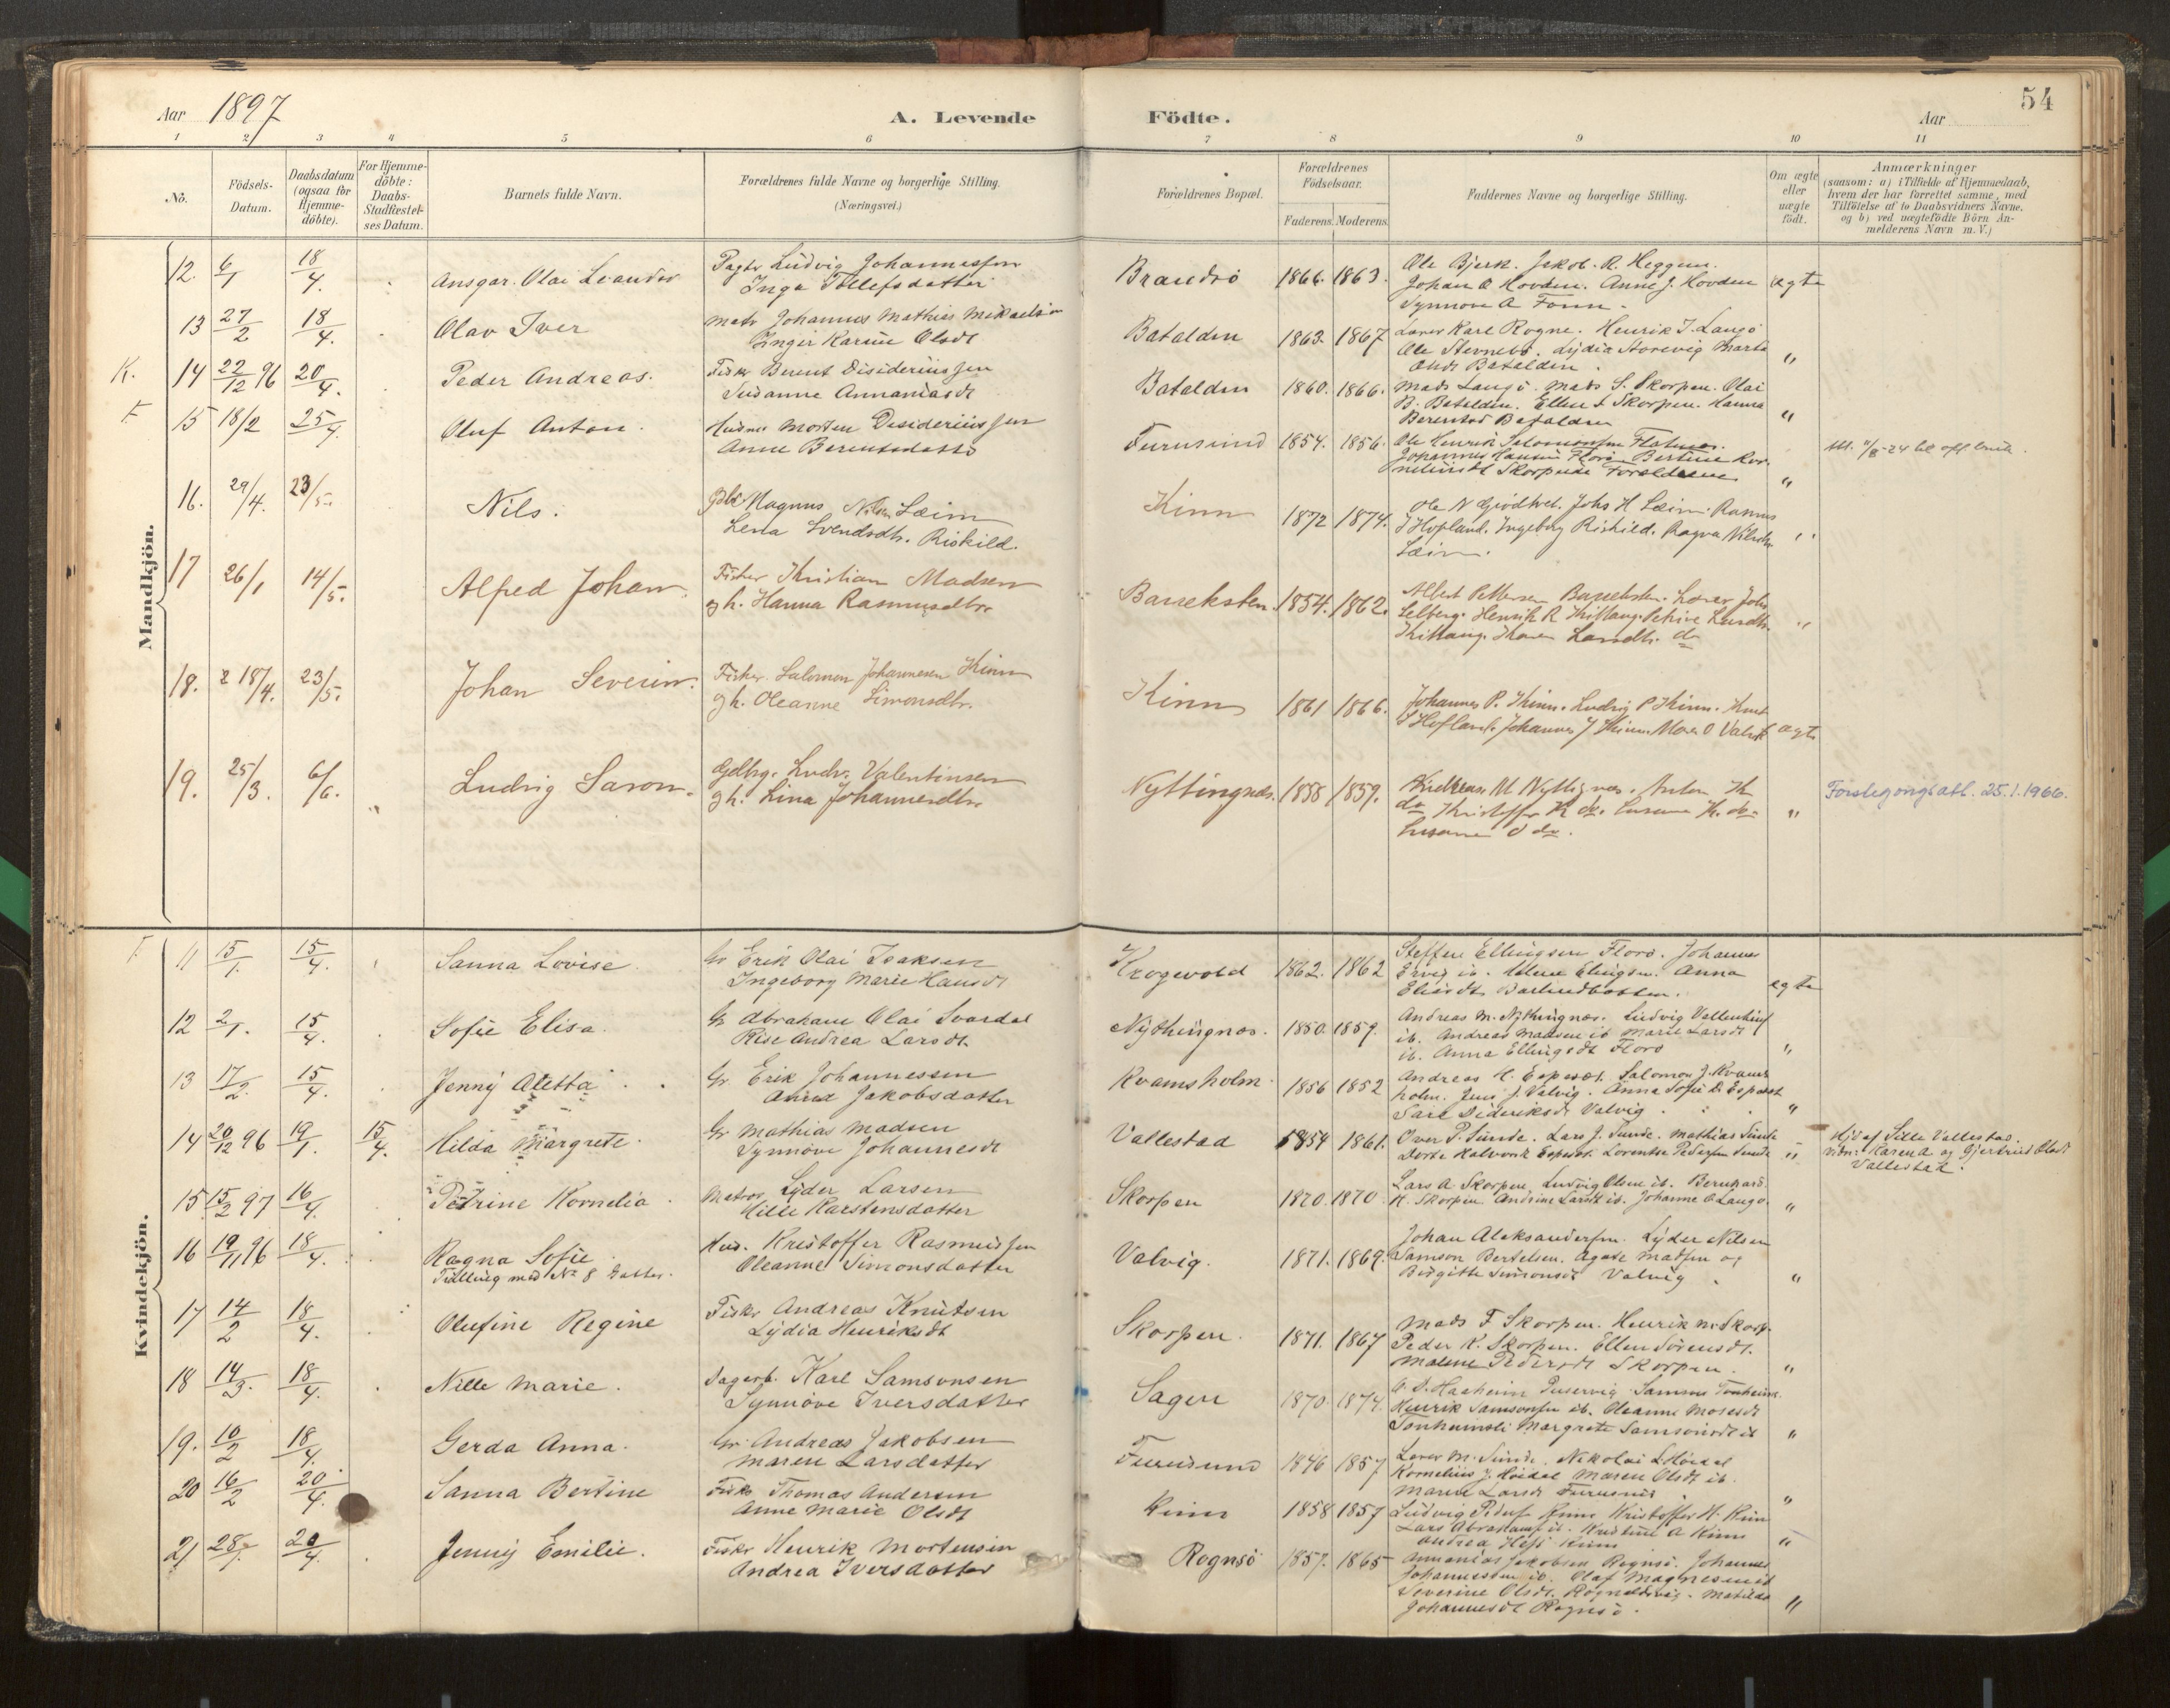 54
Aar 1897
A. Levende Födte.
Aar
1 2 3 4 5 6 7 8 9 10 11
No.
Födsels-Datum.
Daabsdatum (ogsaa for Hjemme-döbte).
For Hjemme-döbte: Daabs-Stadfæstel-ses Datum.
Barnets fulde Navn.
Forældrenes fulde Navne og borgerlige Stilling.
(Næringsvei.)
Forældrenes Bopæl.
Forældrenes Födselsaar.
Faderens. Moderens.
Faddernes Navne og borgerlige Stilling.
Om ægte eller uægte födt.
Anmærkninger
(saasom: a) i Tilfælde af Hjemmedaab,
hvem der har forrettet samme, med
Tilföielse af to Daabsvidners Navne,
og b) ved uægtefödte Börn An-
melderens Navn m. V.)
Mandkjön.
12. 6/1 18/4. Ansgar Olai Leander
Ludvig Johannessen
Inga Tollefsdatter
Brandsö 1866. 1863.
Ole Bjerk. Jakob R. Heggen.
Johan A Hovden. Anne J. Hovden ægte
Synnove A
13 27/2 18/4. Olav Iver
Johannes Mathias Mikaelsen
Inger Karine Olsdt
Batalden 1863. 1867
Lærer Karl Rogne. Henrik J. Langö
Ole Stevnebö. Lydia Storevig Marta
Olsdt Batalden. "
K. 14 22/12 96 20/4. Peder Andreas.
Fisker Berent Disideriussen
Susanne Annaniasdt
Batalden 1860. 1866.
Mads Langö. Mads S. Skorpen. Olai
B. Batalden. Ellen Skorpen. Hanna
Berentsd Batalden "
F. 15 18/2 25/4. Oluf Anton.
Morten Desideriussen
Anne Berentsdatter
Furusund 1854. 1856.
Ole Henrik Salomonsen
Johannes Hansen Florö Bertine Kor-
neliusdt Skorpen Foreldrene "
16. 29/4. 23/5. Nils.
Magnus Nilsen Leim
Lena Svendsdtr. Riskild.
Kinn 1872 1874.
Ole N Johs H Leim Rasmus
J Hopland. Ingeborg Riskild. Ragna Nilsdtr
Leim. "
17 26/1 14/5. Alfred Johan.
Fisker Kristian Madsen
g h. Hanna Rasmusdtr.
Bareksten. 1854. 1862.
Albert Pettersen Bareksten. Lærer Johs
Selberg. Henrik R
do "
18. 18/4. 23/5. Johan Severin.
Fisker Salomon Johannesen Kinn
g h. Oleanne Simonsdtr.
Kinn 1861 1866.
Johannes P. Kinn. Ludvig P Kinn. Knut
Johannes J Kinn. ægte
19. 25/3. 6/6. Ludvig Saron.
Gdbrg. Ludv. Valentinsen
g h. Lina Johannesdtr.
Nyttingnæs. 1858 1859.
Andreas M Nyttignæs. Anton K
do Kristoffer K do. Susanne K. do
Susanne O do. "
Förstegangsatt. 25.1.1966.
Kvindekjön.
F. 11 15/1. 15/4. Sanna Lovise.
Gr Erik Olai Isaksen
Ingeborg Marie Hansdt
Krogevold 1862. 1862
Steffen Ellingsen Florö. Johannes
ib. Elingsen. Anna
Eliasdt Barlindbotten. ægte
12 2/1. 15/4. Sofie Elisa.
Gr Abraham Olai Svardal
Rise Andrea Larsdt
Nythingnæs. 1850. 1859.
Andreas M. Nythingnæs. Ludvig Vallentins
ib. Andreas Madsen ib Marie Larsdt
ib. Anna Ellingsdt Florö "
13 17/2. 15/4. Jenny Aletta
Gr. Erik Johannessen
Anna Jakobsdatter
Kvamsholm 1856 1852
Andreas H. Espeset. Salomon J. Kvams
holm. Jens J. Valvig. Anna Sofie D. Espeset
Sara Dideriksdt Valvig "
14 20/12 96 19/1. 15/4. Hilda Margrete.
Gr Mathias Madsen
Synnöve Johannesdt
Vallestad 1854 1861.
Over P. Sunde. Lars J. Sunde. Mathias Sunde
Dorte Halvorsdt Espeset. Lorentse Pedersen Sunde "
Hjd af Sille Vallestad.
Vidn: Karen A og Gjertrud Olsdt
Vallestad.
15 15/2 97 16/4. Petrine Kornelia.
Matros Lyder Larsen
Mille Karstensdatter
Skorpen 1870. 1870.
Lars A Skorpen. Ludvig Olsen ib. Bernhard
K. Skorpen. Andrine Larsdt ib. Johanne C Langö. "
16 19/11 96 18/4. Ragna Sofie.
Tvilling med No 8 Gutter.
Hus. Kristoffer Rasmussen
Oleanne Simonsdatter
Valvig. 1871. 1869.
Johan Aleksandersen. Lyder Nilsen
Samson Bertelsen. Agate Madsen og
Birgitte Simonsdt Valvig "
17 14/2 18/4. Olufine Regine
Fisker Andreas Knutsen
Lydia Henriksdt
Skorpen. 1871. 1867
Mads F Skorpen. Henrik M. Skorp.
Peder K. Skorpen. Ellen Sörensdt.
Malene Pedersdt Skorpen. "
18 14/3. 18/4. Nille Marie.
Dagarb. Karl Samsonsen
Synnöve Iversdatter
Sagen 1870. 1874.
Haaheim
Henrik Samsonsen ib. Oleanne Mosesdt
Tonheimsli Margrete Samsonsdt ib "
19. 10/2 18/4. Gerda Anna.
Gr. Andreas Jakobsen
Maren Larsdatter
Furusund 1846 1857
Lærer M. Sunde. Nikolai L. Höidal
Kornelius J. Höidal Maren Olsdt ib.
Maren Larsdt Furusund "
20 16/2 20/4. Sanna Bertine
Fisker Thomas Andersen
Anne Marie Olsdt
Kinn 1858 1857
Ludvig Peders Kinn Kristoffer H. Kinn
Lars Abrahams ib. Kristine A Kinn
Andrea Kinn "
21 28/1. 20/4. Jenny Emilie.
Fisker Henrik Mortensen
Andrea Iversdatter
Rognsö 1857. 1865
Annanias Jakobsen Rognsö. Johannes
Johannessen ib. Olaf Magnesen ib
Severine Olsdt. Rognaldsvig. Matilda
Johannesdt Rognsö. "